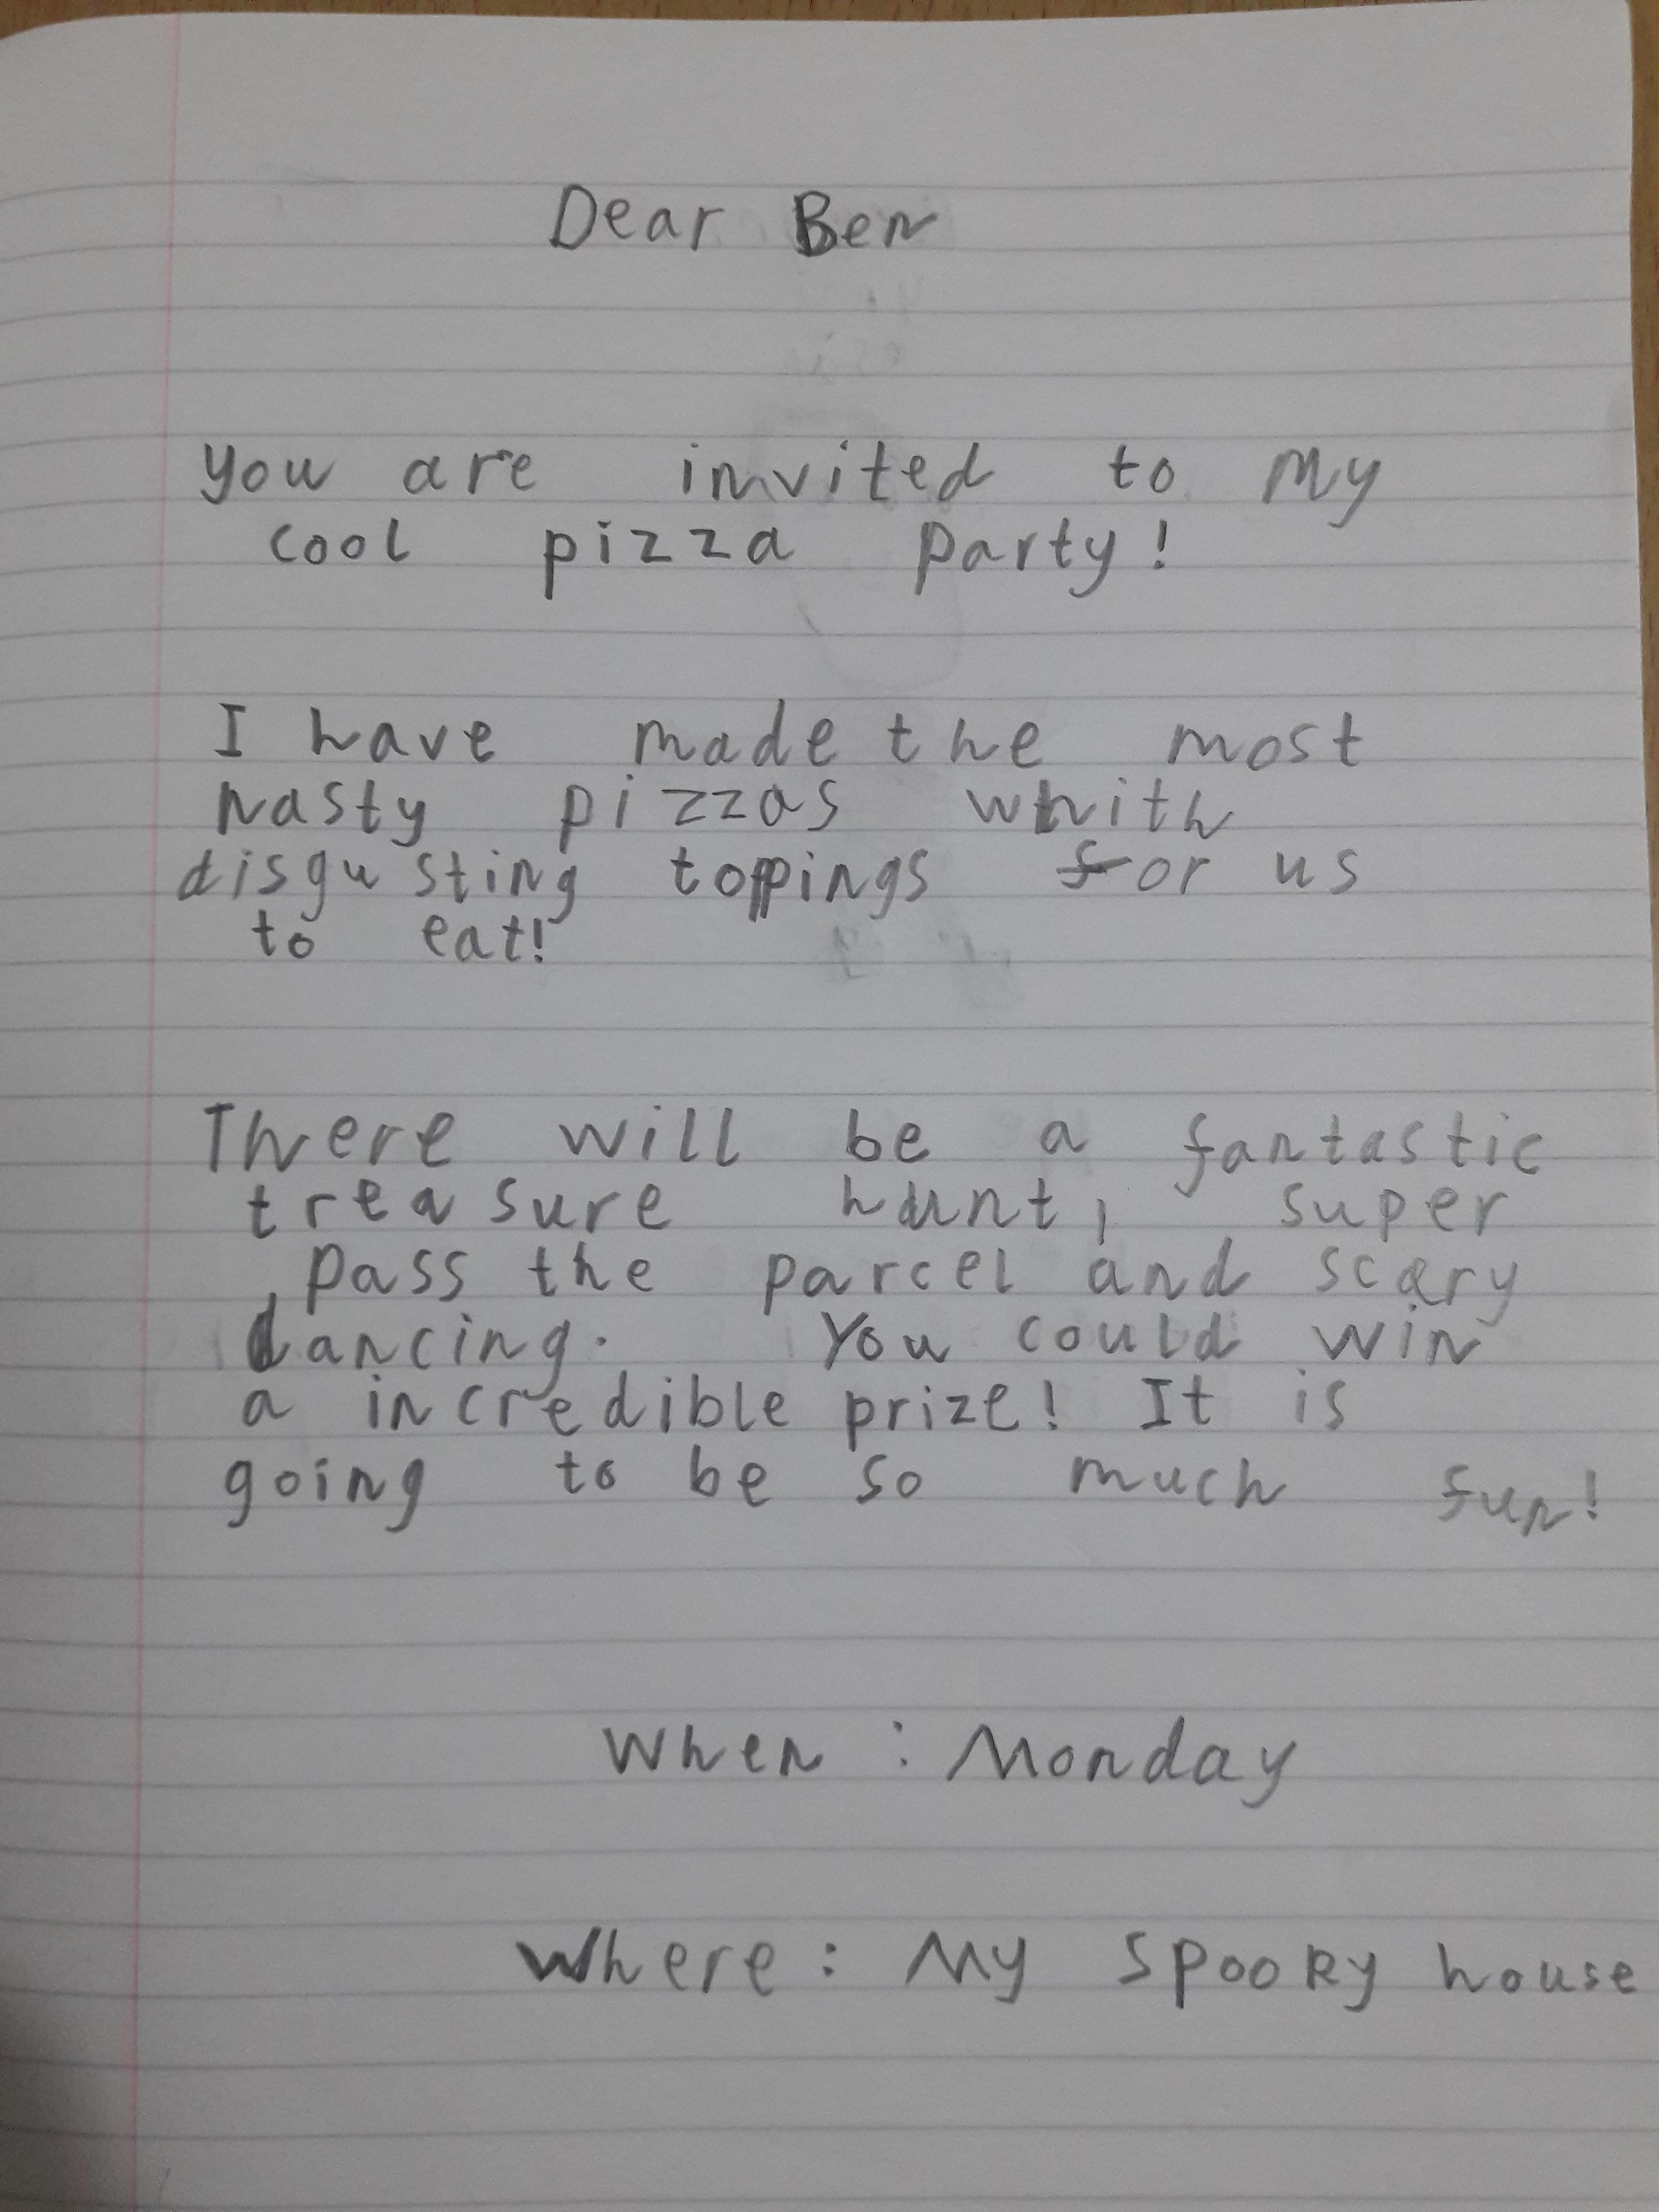 Dear Ben
You are invited to my
cool pizza party!
I have made the most
nasty pizzas whith
disgusting toppings for us
to eat!
There will be a fantastic
treasure hunt, super
pass the parcel and scary
dancing. You could win
a incredible prize! It is
going to be so much fun!
When : Monday
Where : My spooky house